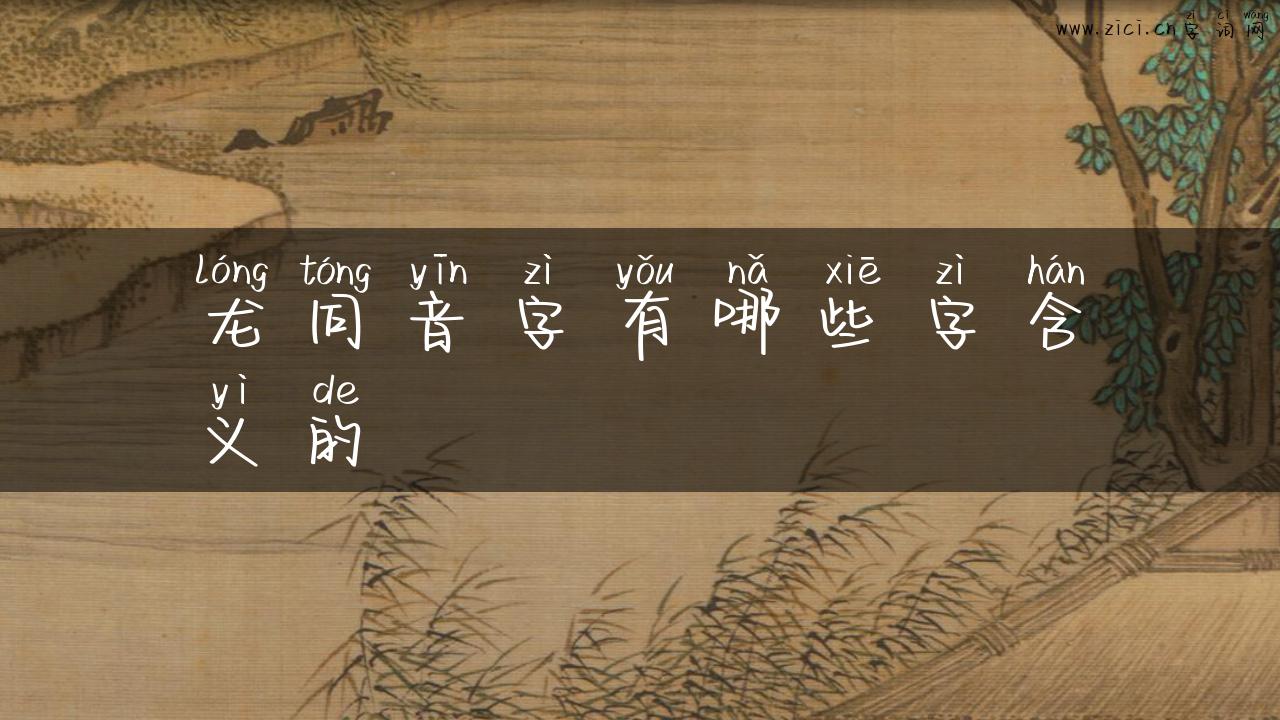 zì cí wǎng
www.zici.cn字词网
lóng tóng yīn zì yǒu nǎ xiē zì hán
龙同音字有哪些字含
yì de
义的